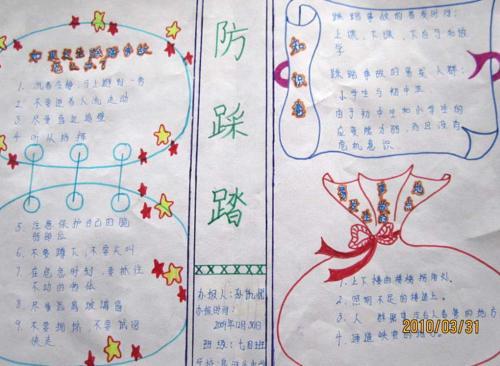 如果发生踩踏事故
怎么办？
1. 沉着冷静,马上蹲到一旁
2. 不要逆着人流走动
3. 尽量靠边
4. 听从指挥
5. 注意保护自己的胸
部部位
6. 不要蹲下,不要尖叫
7. 在危急时刻,要抓住
不动的物体
8. 尽量远离玻璃窗
9. 不要拥挤,不要
快走
防
踩
踏
办报人:
办报时间:
2009年12月30日
班级:七
学校:
知
识
窗
踩踏事故的易发时间:
上课、下课、
学
踩踏事故的易发人群:
小学生与初中生
由于初中生和小学生的
应变能力弱,而且没有
危机意识.
易发生
事故
地点
1. 上下楼的楼梯拐角处.
2. 照明不足的楼道上.
3. 人群聚集的地方
4. 通道狭窄的
2010/03/31